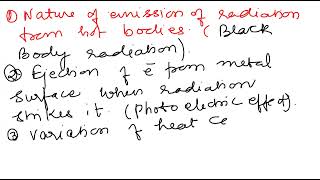 ① Nature of emission of radiation
from hot bodies. (Black
Body radiation).
② Ejection of ē from metal
surface when radiation
strikes it. (Photo electric effect).
③ Variation of heat Ce